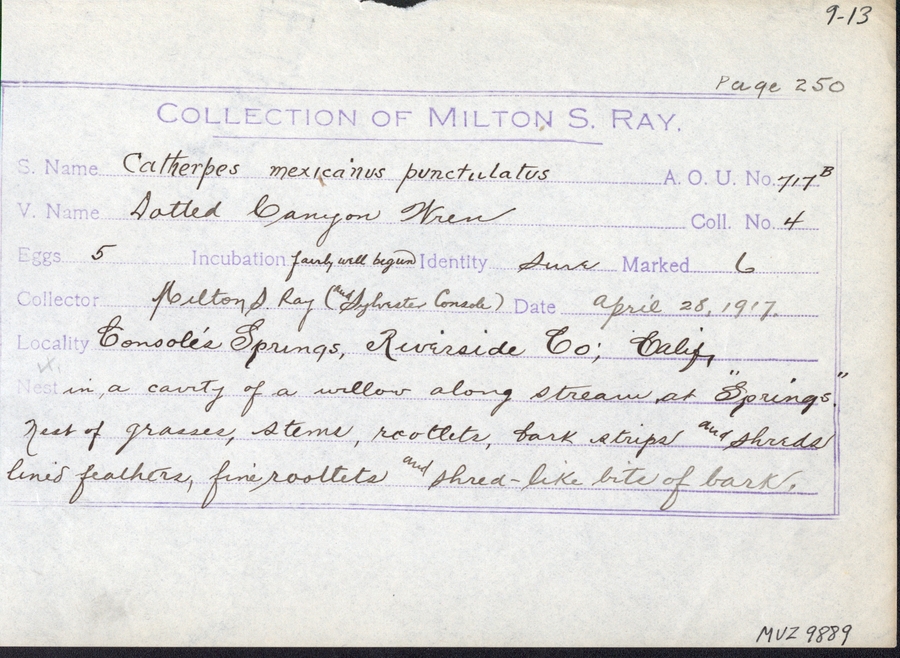 9-13
Page 250
COLLECTION OF MILTON S. RAY.
S. Name Catherpes mexicanus punctulatus A. O. U. No. 717B
V. Name Dotted Canyon Wren Coll. No. 4
Eggs 5 Incubation fairly well begun Identity Sure Marked 6
Collector Milton S. Ray (and Sylvester Console) Date April 28, 1917.
Locality Console's Springs, Riverside Co; Calif,
Nest in a cavity of a willow along stream at "Springs."
Nest of grasses, stems, rootlets, bark strips and shreds
lined feathers, fine rootlets and shred-like bits of bark.
MVZ 9889